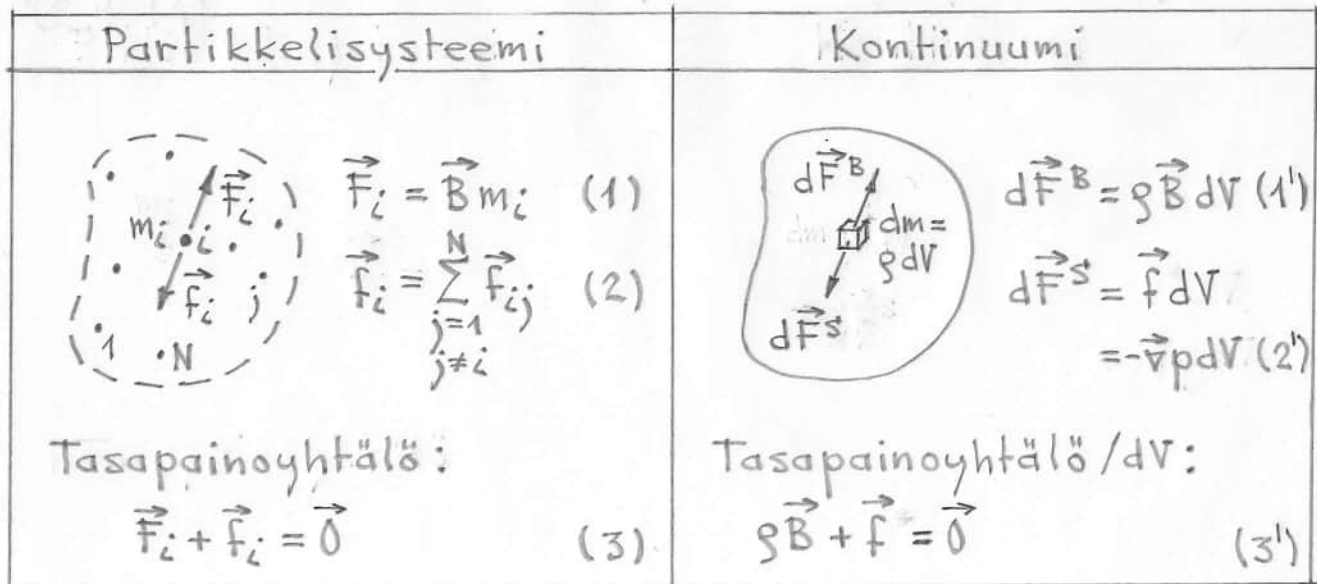 Partikkelisysteemi
F⃗_i
m_i i
f⃗_i j
1
N
F⃗_i = B⃗ m_i (1)
f⃗_i = Σ_{j=1, j≠i}^{N} f⃗_ij (2)
Tasapainoyhtälö:
F⃗_i + f⃗_i = 0⃗ (3)
Kontinuumi
dF⃗^B
dm =
ρdV
dF⃗^S
dF⃗^B = ρB⃗dV (1')
dF⃗^S = f⃗dV
= -∇⃗pdV (2')
Tasapainoyhtälö/dV:
ρB⃗ + f⃗ = 0⃗ (3')